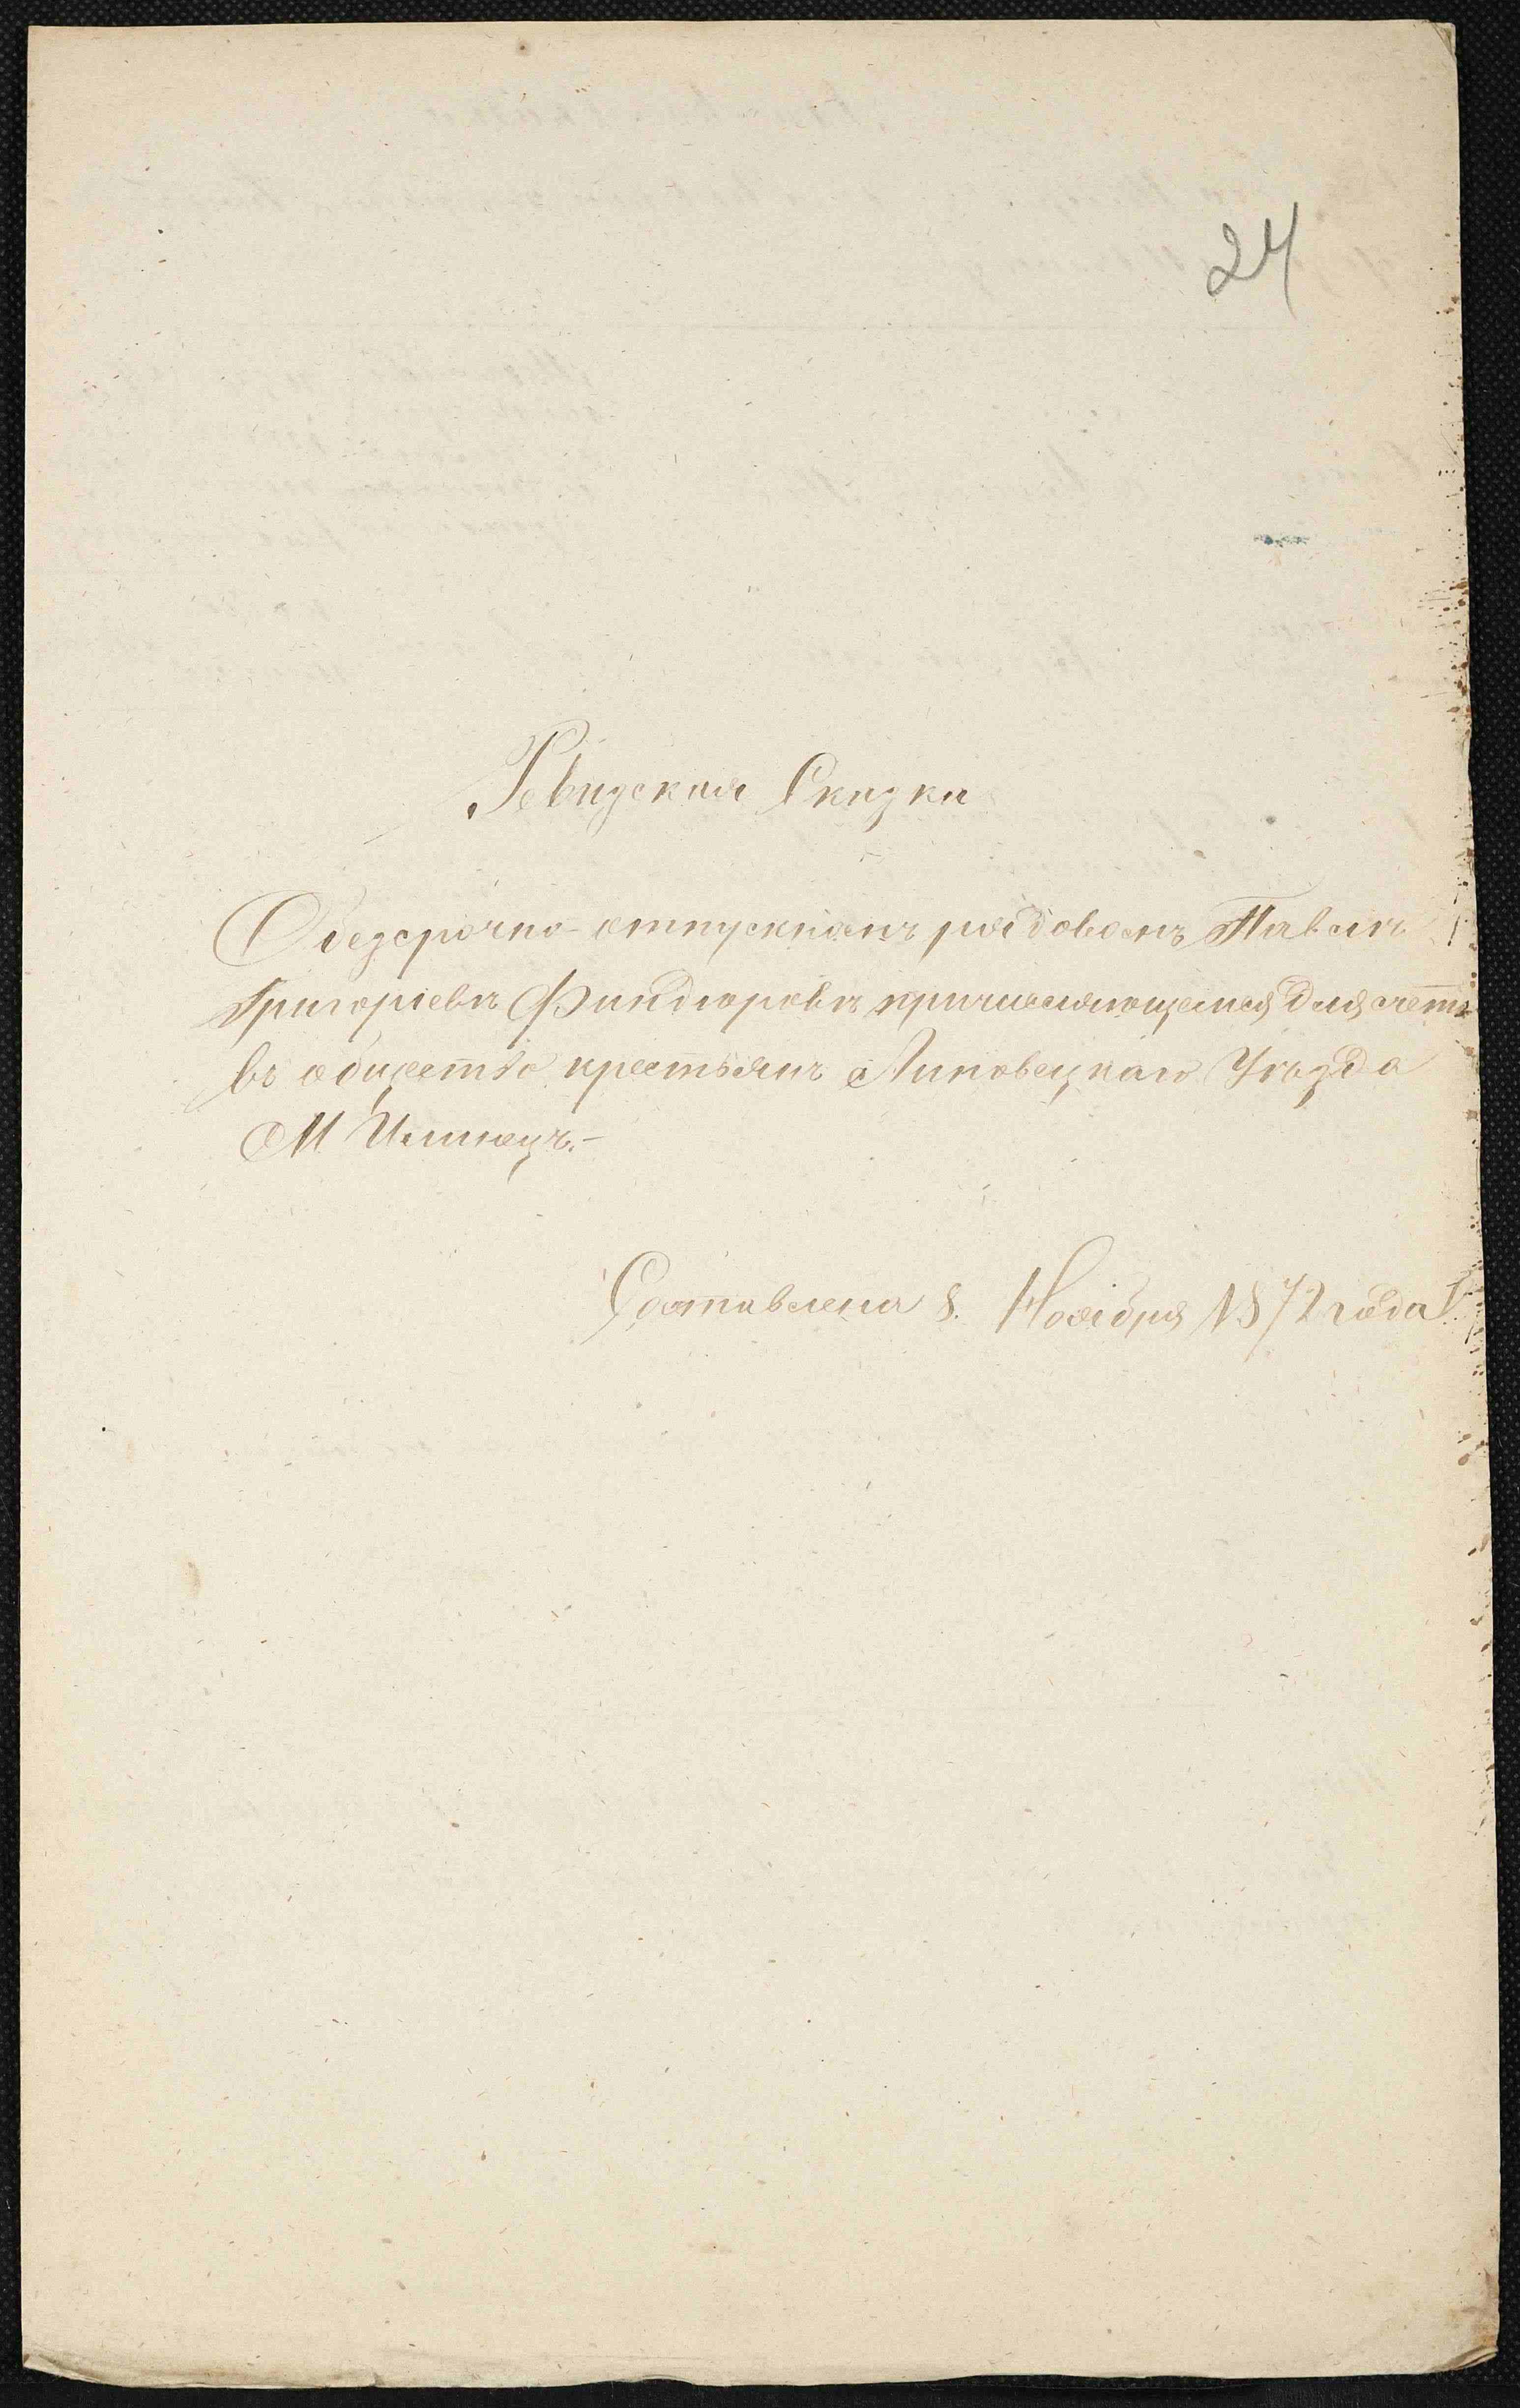 24
Ревизская Сказка
О безсрочно-отпускномъ рядовомъ Павлѣ
Григоріевѣ Финдюровѣ причисляющемся для счета
въ общество крестьянъ Липовецкаго Уѣзда
М Илинецъ.-
Составлена 8. Ноября 1872 года